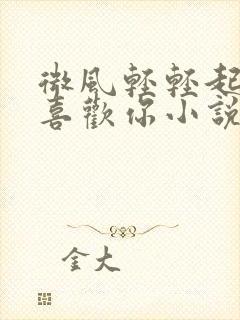 微風輕輕起
喜歡你小說
金大